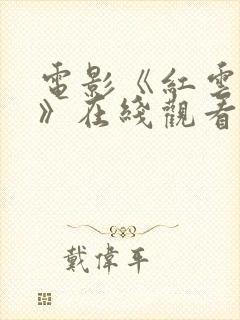 電影《紅雲
》在綫觀看
戴偉平